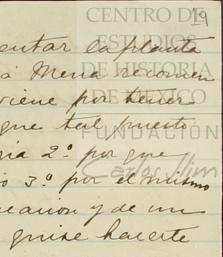 19
CENTRO DE
ESTUDIOS
DE HISTORIA
DE MÉXICO
FUNDACIÓN
Carlos Slim
entar la planta
á Mena recomen
viene por tener
que tal puesto
ria 2º por que
io 3º por el mismo
eacion y de un
quise hacerte